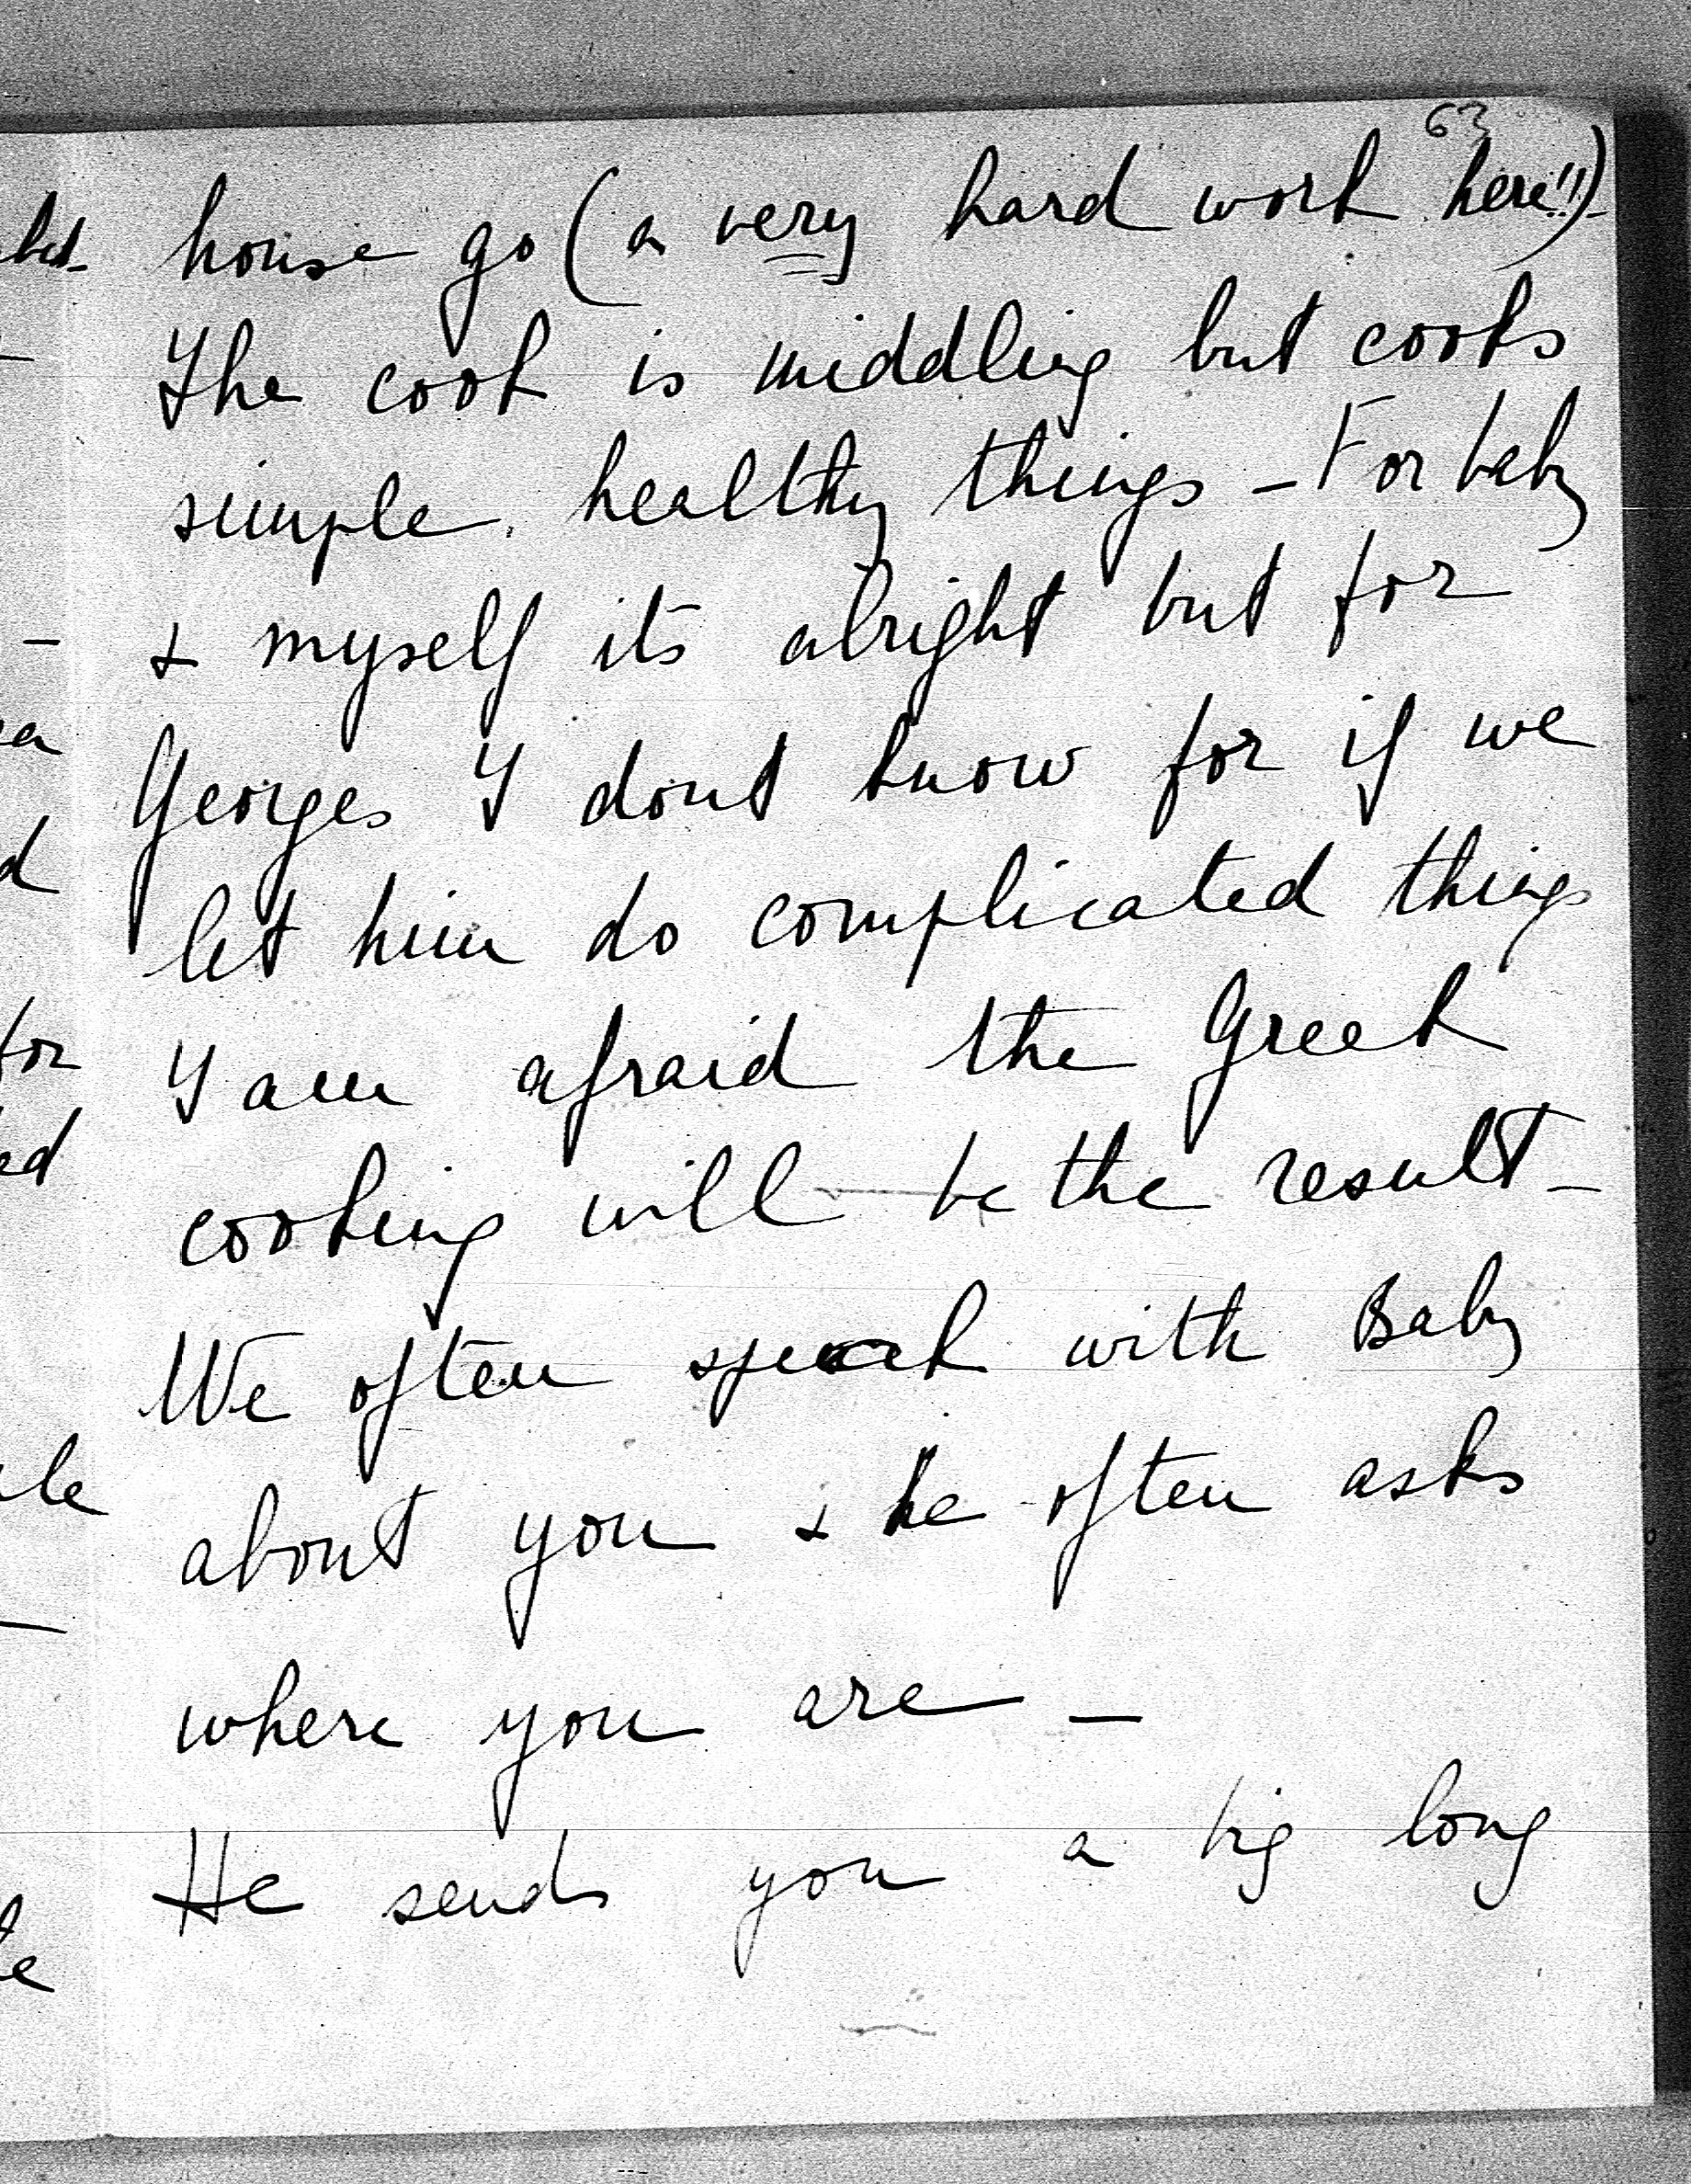 63
house go (a very hard work here!!!)-
The cook is middling but cooks
simple healthy things - For baby
& myself its alright but for
Georges I dont know for if we
let him do complicated things
I am afraid the Greek
cooking will be the result -
We often speak with Baby
about you & he often asks
where you are -
He sends you a big long